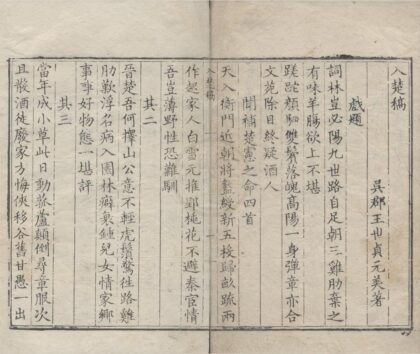 入楚稿
吳郡王世貞元美著
戲題
詞林豈必陽九世路自足朝三雞肋棄之
有味羊腸欲上不堪
蹉跎顏駟雙鬢落魄高陽一身彈章亦合
文苑除目終疑酒人
聞補楚憲之命四首
天入衡門近朝將綬新五投歸畝疏兩
入楚稿
作起家人白雪元推郢桃花不避秦宦情
吾豈薄野性恐難馴
其二
晉楚吾何擇山公意不輕虎鬚驚往路雞
肋歎浮名病入園林癖衰纏兒女情家鄉
事事好物態一堪評
其三
當年成小草此日動菰蘆顛倒尋章服次
且散酒徒廢家方悔俠移谷舊甘愚一出